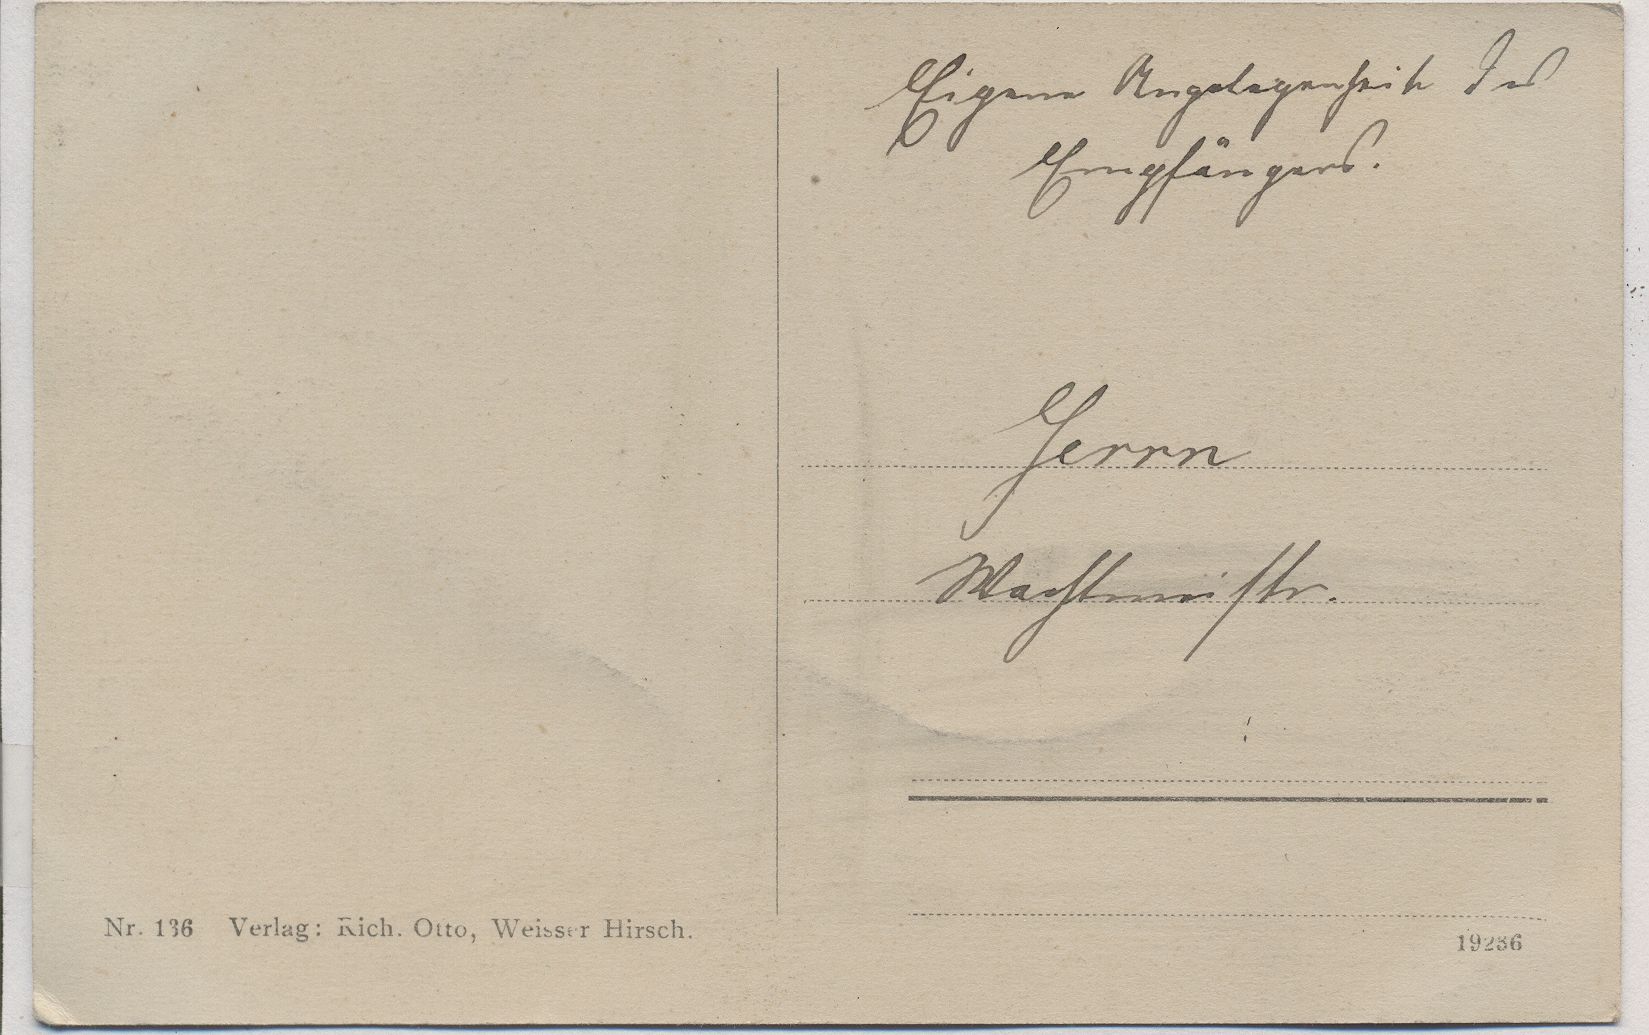 Eigene Angelegenheit des
Empfängers.
Herrn
Wachtmeistr.
Nr. 136 Verlag: Rich. Otto, Weisser Hirsch.
19286